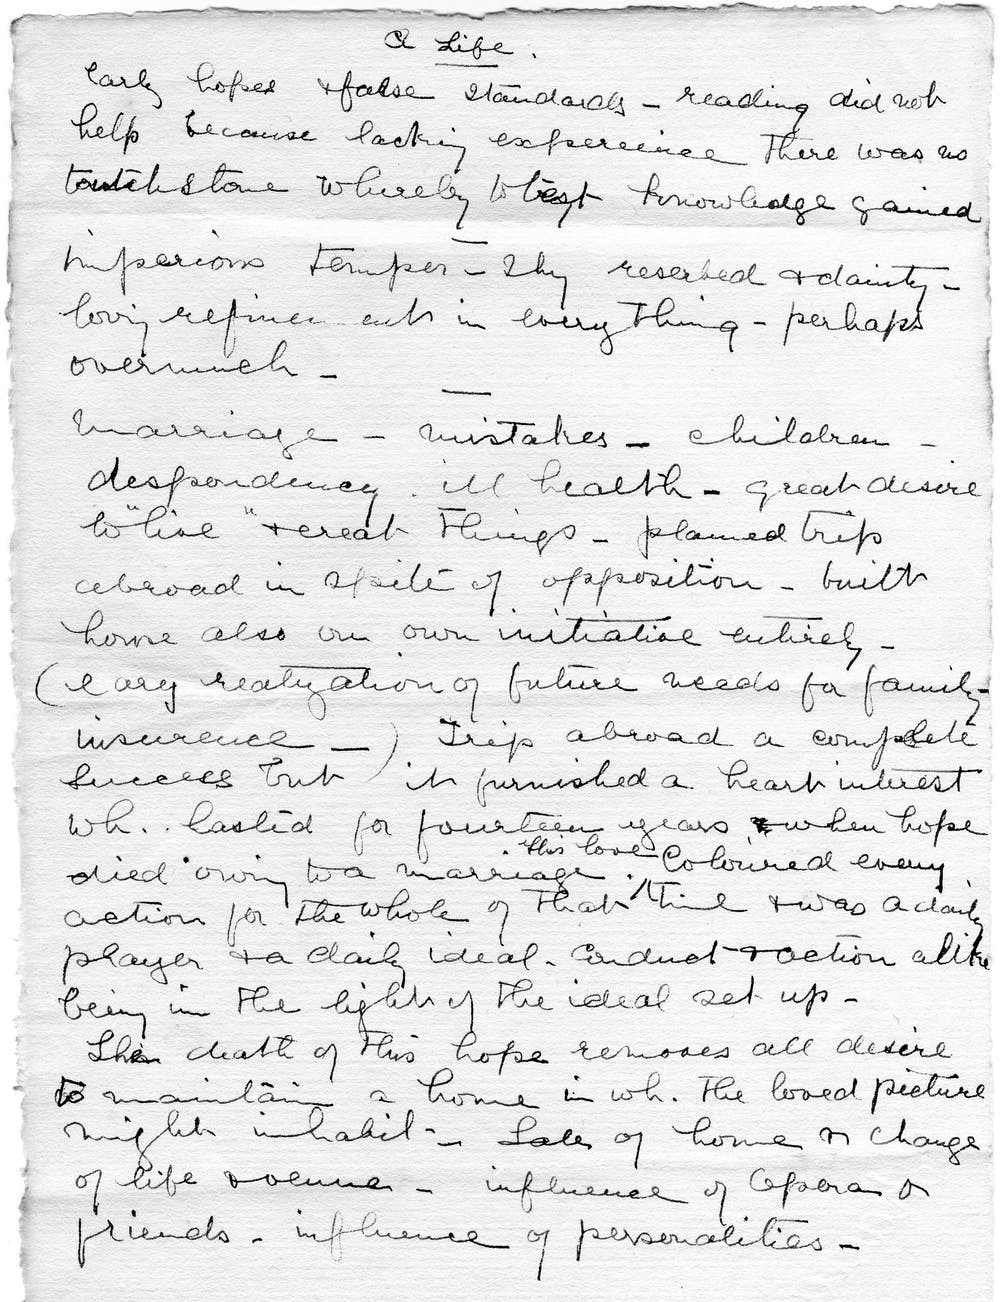 A Life.
Early hopes & false standards – reading did not
help because lacking experience there was no
touchstone whereby to test knowledge gained
Imperious temper – shy reserved & dainty –
loving refinements in everything – perhaps
overmuch –
Marriage – mistakes – children –
despondency. ill health – great desire
to "live" & creat things – planned trip
abroad in spite of opposition – built
home also on own initiative entirely –
(Early realization of future needs for family
insurence –) Trip abroad a complete
success but it furnished a heart interest
wh.. lasted for fourteen years & when hope
died owing to a marriage. This love Coloured every
action for the whole of that time & was a daily
prayer & a daily ideal. Conduct & action alike
being in the light of the ideal set up –
The death of this hope removes all desire
to maintain a home in wh. the loved picture
might inhabit – Sale of home & change
of life & venue – influence of Opera &
friends – influence of personalities –